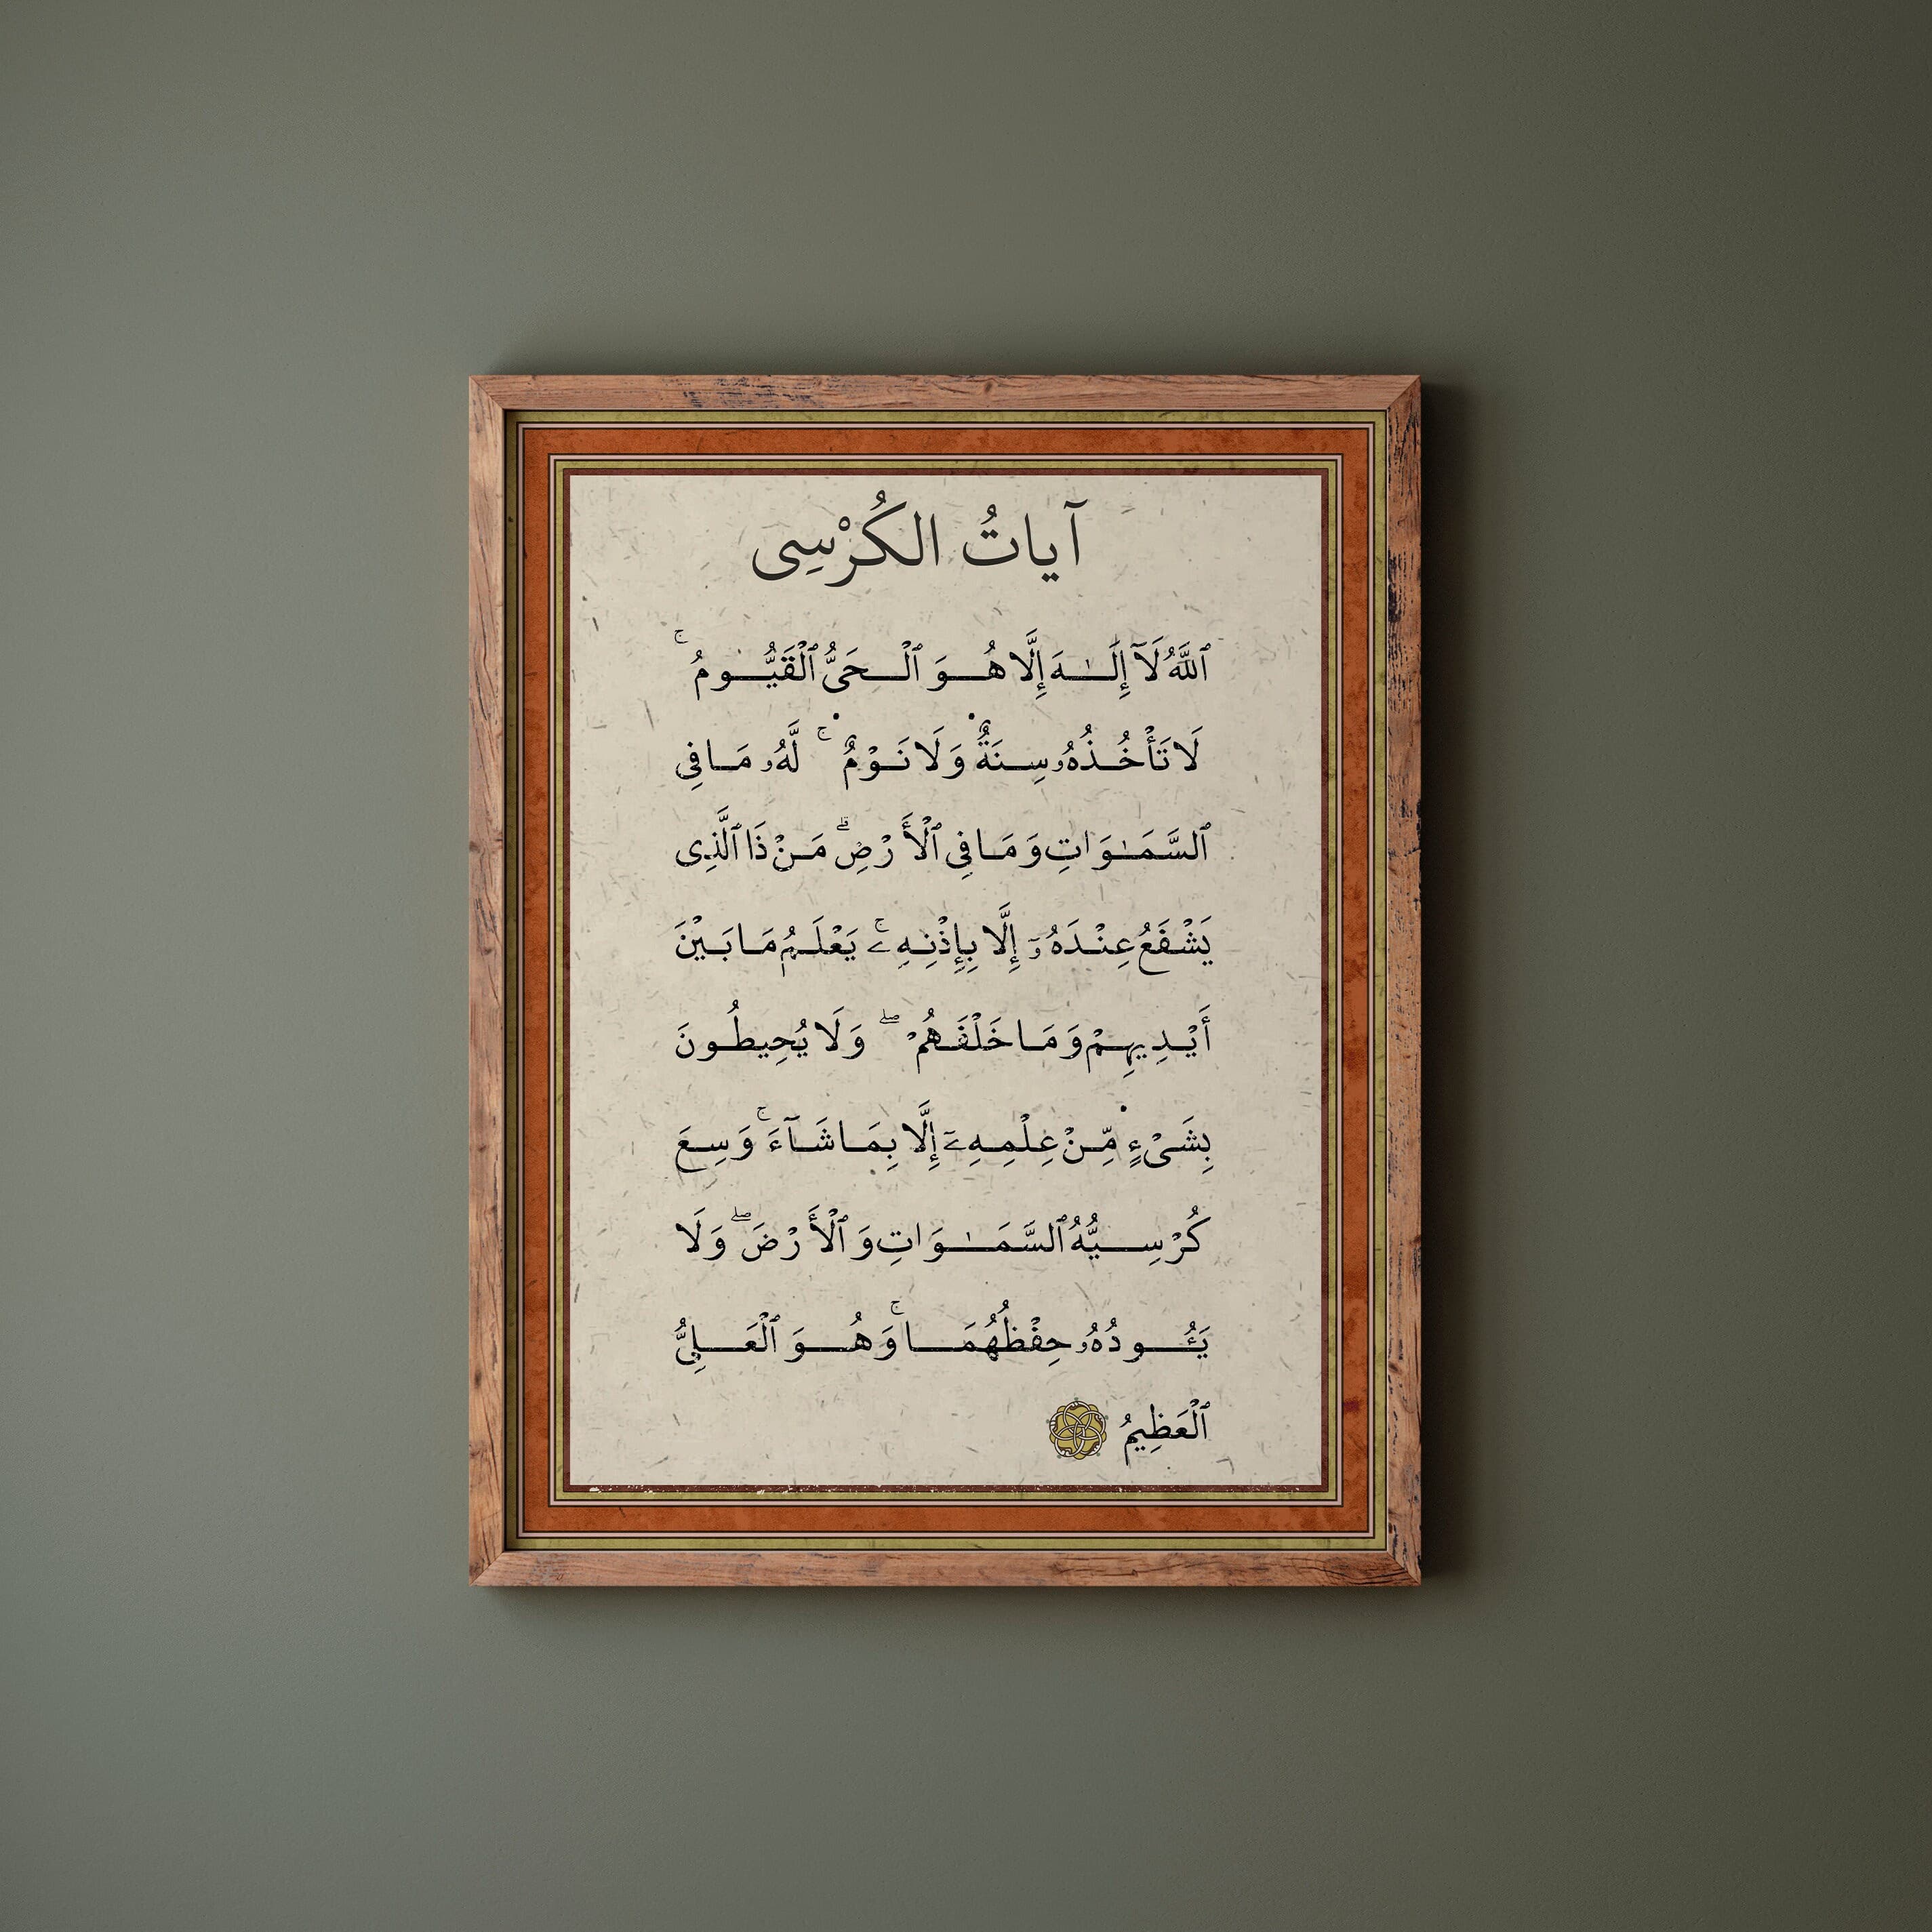 آياتُ الكُرْسِى
ٱللَّهُ لَآ إِلَـٰهَ إِلَّا هُوَ ٱلْحَىُّ ٱلْقَيُّومُ ۚ
لَا تَأْخُذُهُۥ سِنَةٌ وَلَا نَوْمٌ ۚ لَّهُۥ مَا فِى
ٱلسَّمَـٰوَاتِ وَمَا فِى ٱلْأَرْضِ ۗ مَنْ ذَا ٱلَّذِى
يَشْفَعُ عِنْدَهُۥٓ إِلَّا بِإِذْنِهِۦ ۚ يَعْلَمُ مَا بَيْنَ
أَيْدِيهِمْ وَمَا خَلْفَهُمْ ۖ وَلَا يُحِيطُونَ
بِشَىْءٍ مِّنْ عِلْمِهِۦٓ إِلَّا بِمَا شَآءَ ۚ وَسِعَ
كُرْسِيُّهُ ٱلسَّمَـٰوَاتِ وَٱلْأَرْضَ ۖ وَلَا
يَـُٔودُهُۥ حِفْظُهُمَا ۚ وَهُوَ ٱلْعَلِىُّ
ٱلْعَظِيمُ